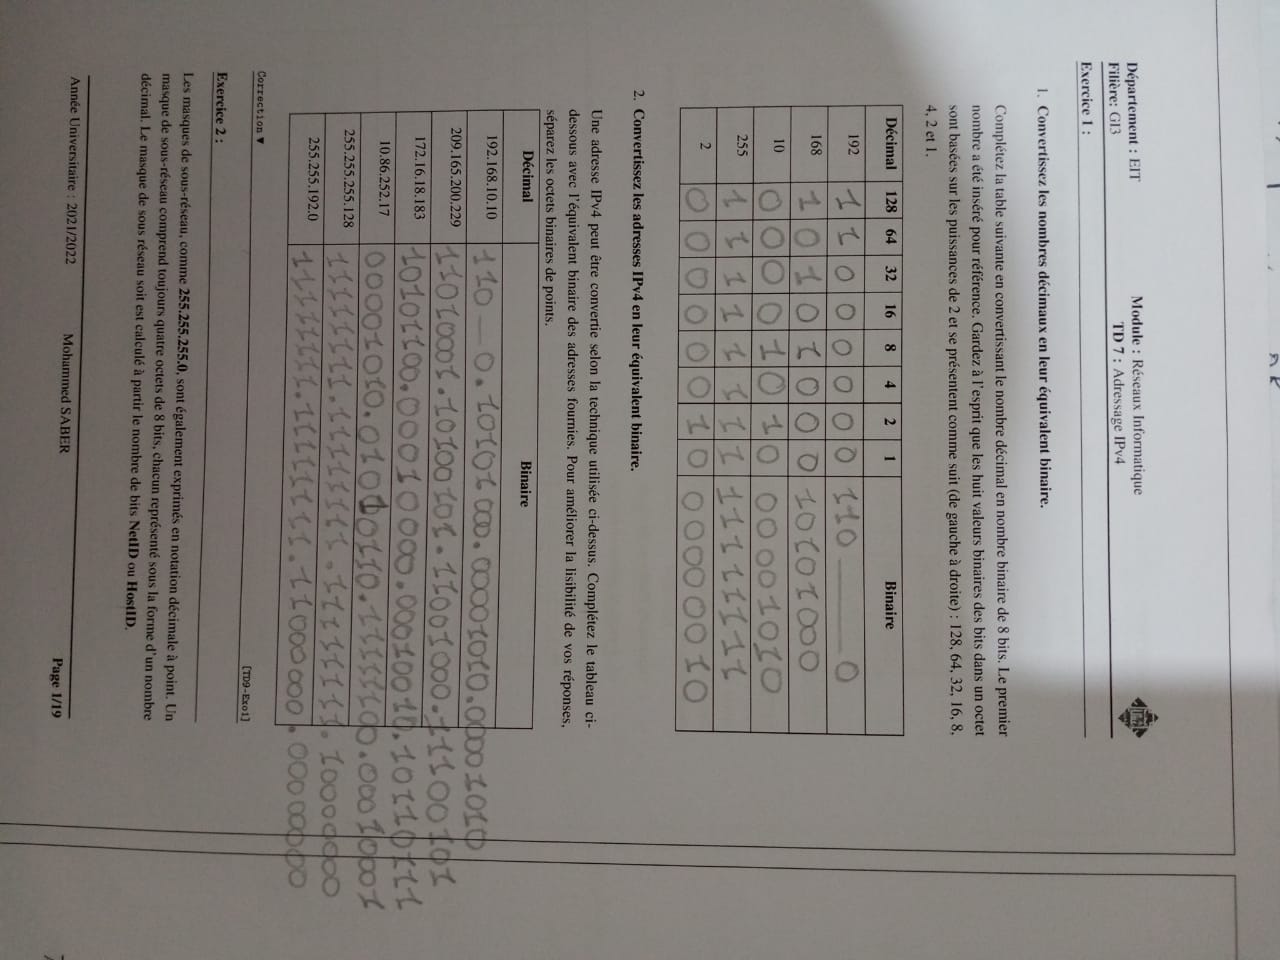 Département : EIT
Module : Réseaux Informatique
Filière: GI3
TD 7 : Adressage IPv4
Exercice 1 :
1. Convertissez les nombres décimaux en leur équivalent binaire.
Complétez la table suivante en convertissant le nombre décimal en nombre binaire de 8 bits. Le premier
nombre a été inséré pour référence. Gardez à l'esprit que les huit valeurs binaires des bits dans un octet
sont basées sur les puissances de 2 et se présentent comme suit (de gauche à droite) : 128, 64, 32, 16, 8,
4, 2 et 1.
Décimal 128 64 32 16 8 4 2 1 Binaire
192 1 1 0 0 0 0 0 0 110 ——— 0
168 1 0 1 0 1 0 0 0 10101000
10 0 0 0 0 1 0 1 0 00001010
255 1 1 1 1 1 1 1 1 11111111
2 0 0 0 0 0 0 1 0 00000010
2. Convertissez les adresses IPv4 en leur équivalent binaire.
Une adresse IPv4 peut être convertie selon la technique utilisée ci-dessus. Complétez le tableau ci-
dessous avec l'équivalent binaire des adresses fournies. Pour améliorer la lisibilité de vos réponses,
séparez les octets binaires de points.
Décimal Binaire
192.168.10.10 110 — 0.10101000.00001010.00001010
209.165.200.229 11010001.10100101.11001000.11100101
172.16.18.183 10101100.00010000.00010010.10110111
10.86.252.17 00001010.01010110.11111100.00010001
255.255.255.128 11111111.11111111.11111111.10000000
255.255.192.0 11111111.11111111.11000000.00000000
Correction ▼
[TD9-Exo1]
Exercice 2 :
Les masques de sous-réseau, comme 255.255.255.0, sont également exprimés en notation décimale à point. Un
masque de sous-réseau comprend toujours quatre octets de 8 bits, chacun représenté sous la forme d'un nombre
décimal. Le masque de sous réseau soit est calculé à partir le nombre de bits NetID ou HostID.
Année Universitaire : 2021/2022
Mohammed SABER
Page 1/19